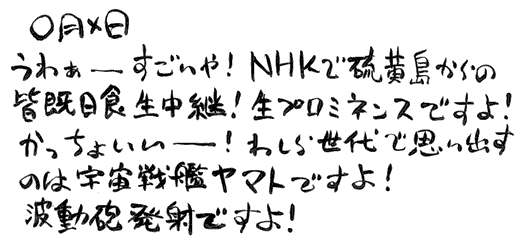 〇月×日
うわぁーすごいや！NHKで硫黄島からの
皆既日食生中継！生プロミネンスですよ！
かっちょいいー！わしら世代で思い出す
のは宇宙戦艦ヤマトですよ！
波動砲発射ですよ！